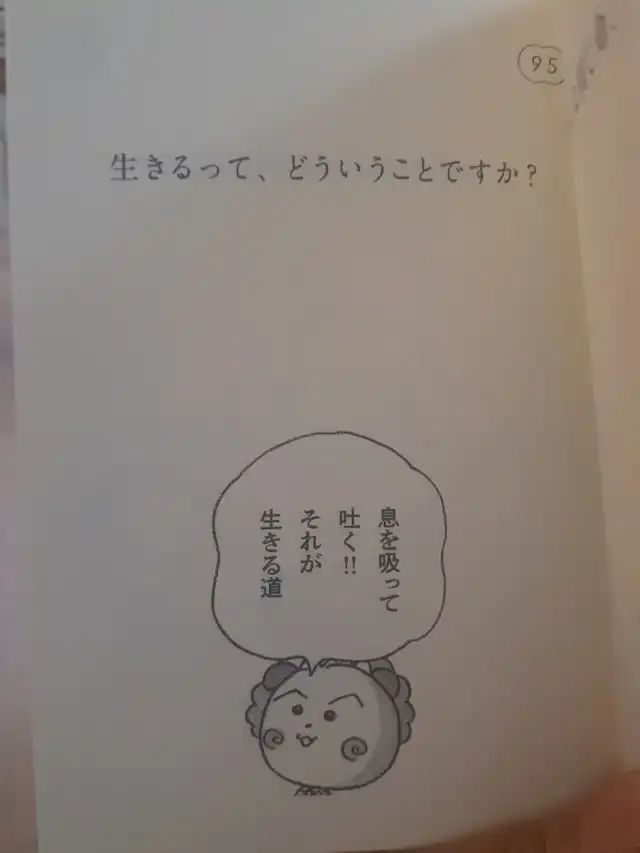 95
生きるって、どういうことですか?
息を吸って
吐く!!
それが
生きる道